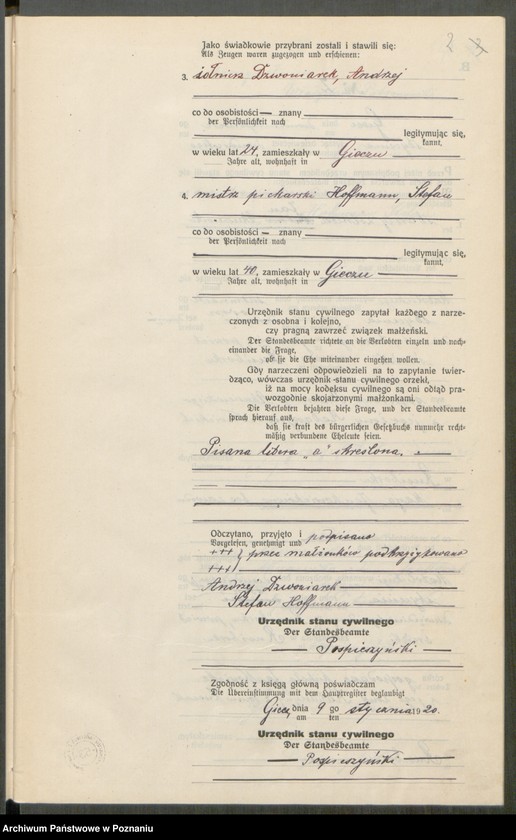 2 3
Jako świadkowie przybrani zostali i stawili się:
Als Zeugen waren zugezogen und erschienen:
3. żołnierz Dzwoniarek, Andrzej
co do osobistości — znany
der Persönlichkeit nach
legitymując się,
kannt,
w wieku lat 24, zamieszkały w Gieczu
Jahre alt, wohnhaft in
4. mistrz piekarski Hoffmann, Stefan
co do osobistości — znany
der Persönlichkeit nach
legitymując się,
kannt,
w wieku lat 40, zamieszkały w Gieczu
Jahre alt, wohnhaft in
Urzędnik stanu cywilnego zapytał każdego z narze-
czonych z osobna i kolejno,
czy pragną zawrzeć związek małżeński.
Der Standesbeamte richtete an die Verlobten einzeln und nach-
einander die Frage,
ob sie die Ehe miteinander eingehen wollen.
Gdy narzeczeni odpowiedzieli na to zapytanie twier-
dząco, wówczas urzędnik stanu cywilnego orzekł,
iż na mocy kodeksu cywilnego są oni odtąd pra-
wozgodnie skojarzonymi małżonkami.
Die Verlobten bejahten diese Frage, und der Standesbeamte
sprach hierauf aus,
daß sie kraft des bürgerlichen Gesetzbuchs nunmehr recht-
mäßig verbundene Eheleute seien.
Pisana litera „a" skreślona. —
Odczytano, przyjęto i podpisano
Vorgelesen, genehmigt und
+++ } przez małżonków podkrzyżykowano
+++
Andrzej Dzwoniarek
Stefan Hoffmann
Urzędnik stanu cywilnego
Der Standesbeamte
— Pospieszyński —
Zgodność z księgą główną poświadczam
Die Übereinstimmung mit dem Hauptregister beglaubigt
Giecz, dnia 9 go stycznia 1920.
am ten
Urzędnik stanu cywilnego
Der Standesbeamte
— Pospieszyński —
Archiwum Państwowe w Poznaniu